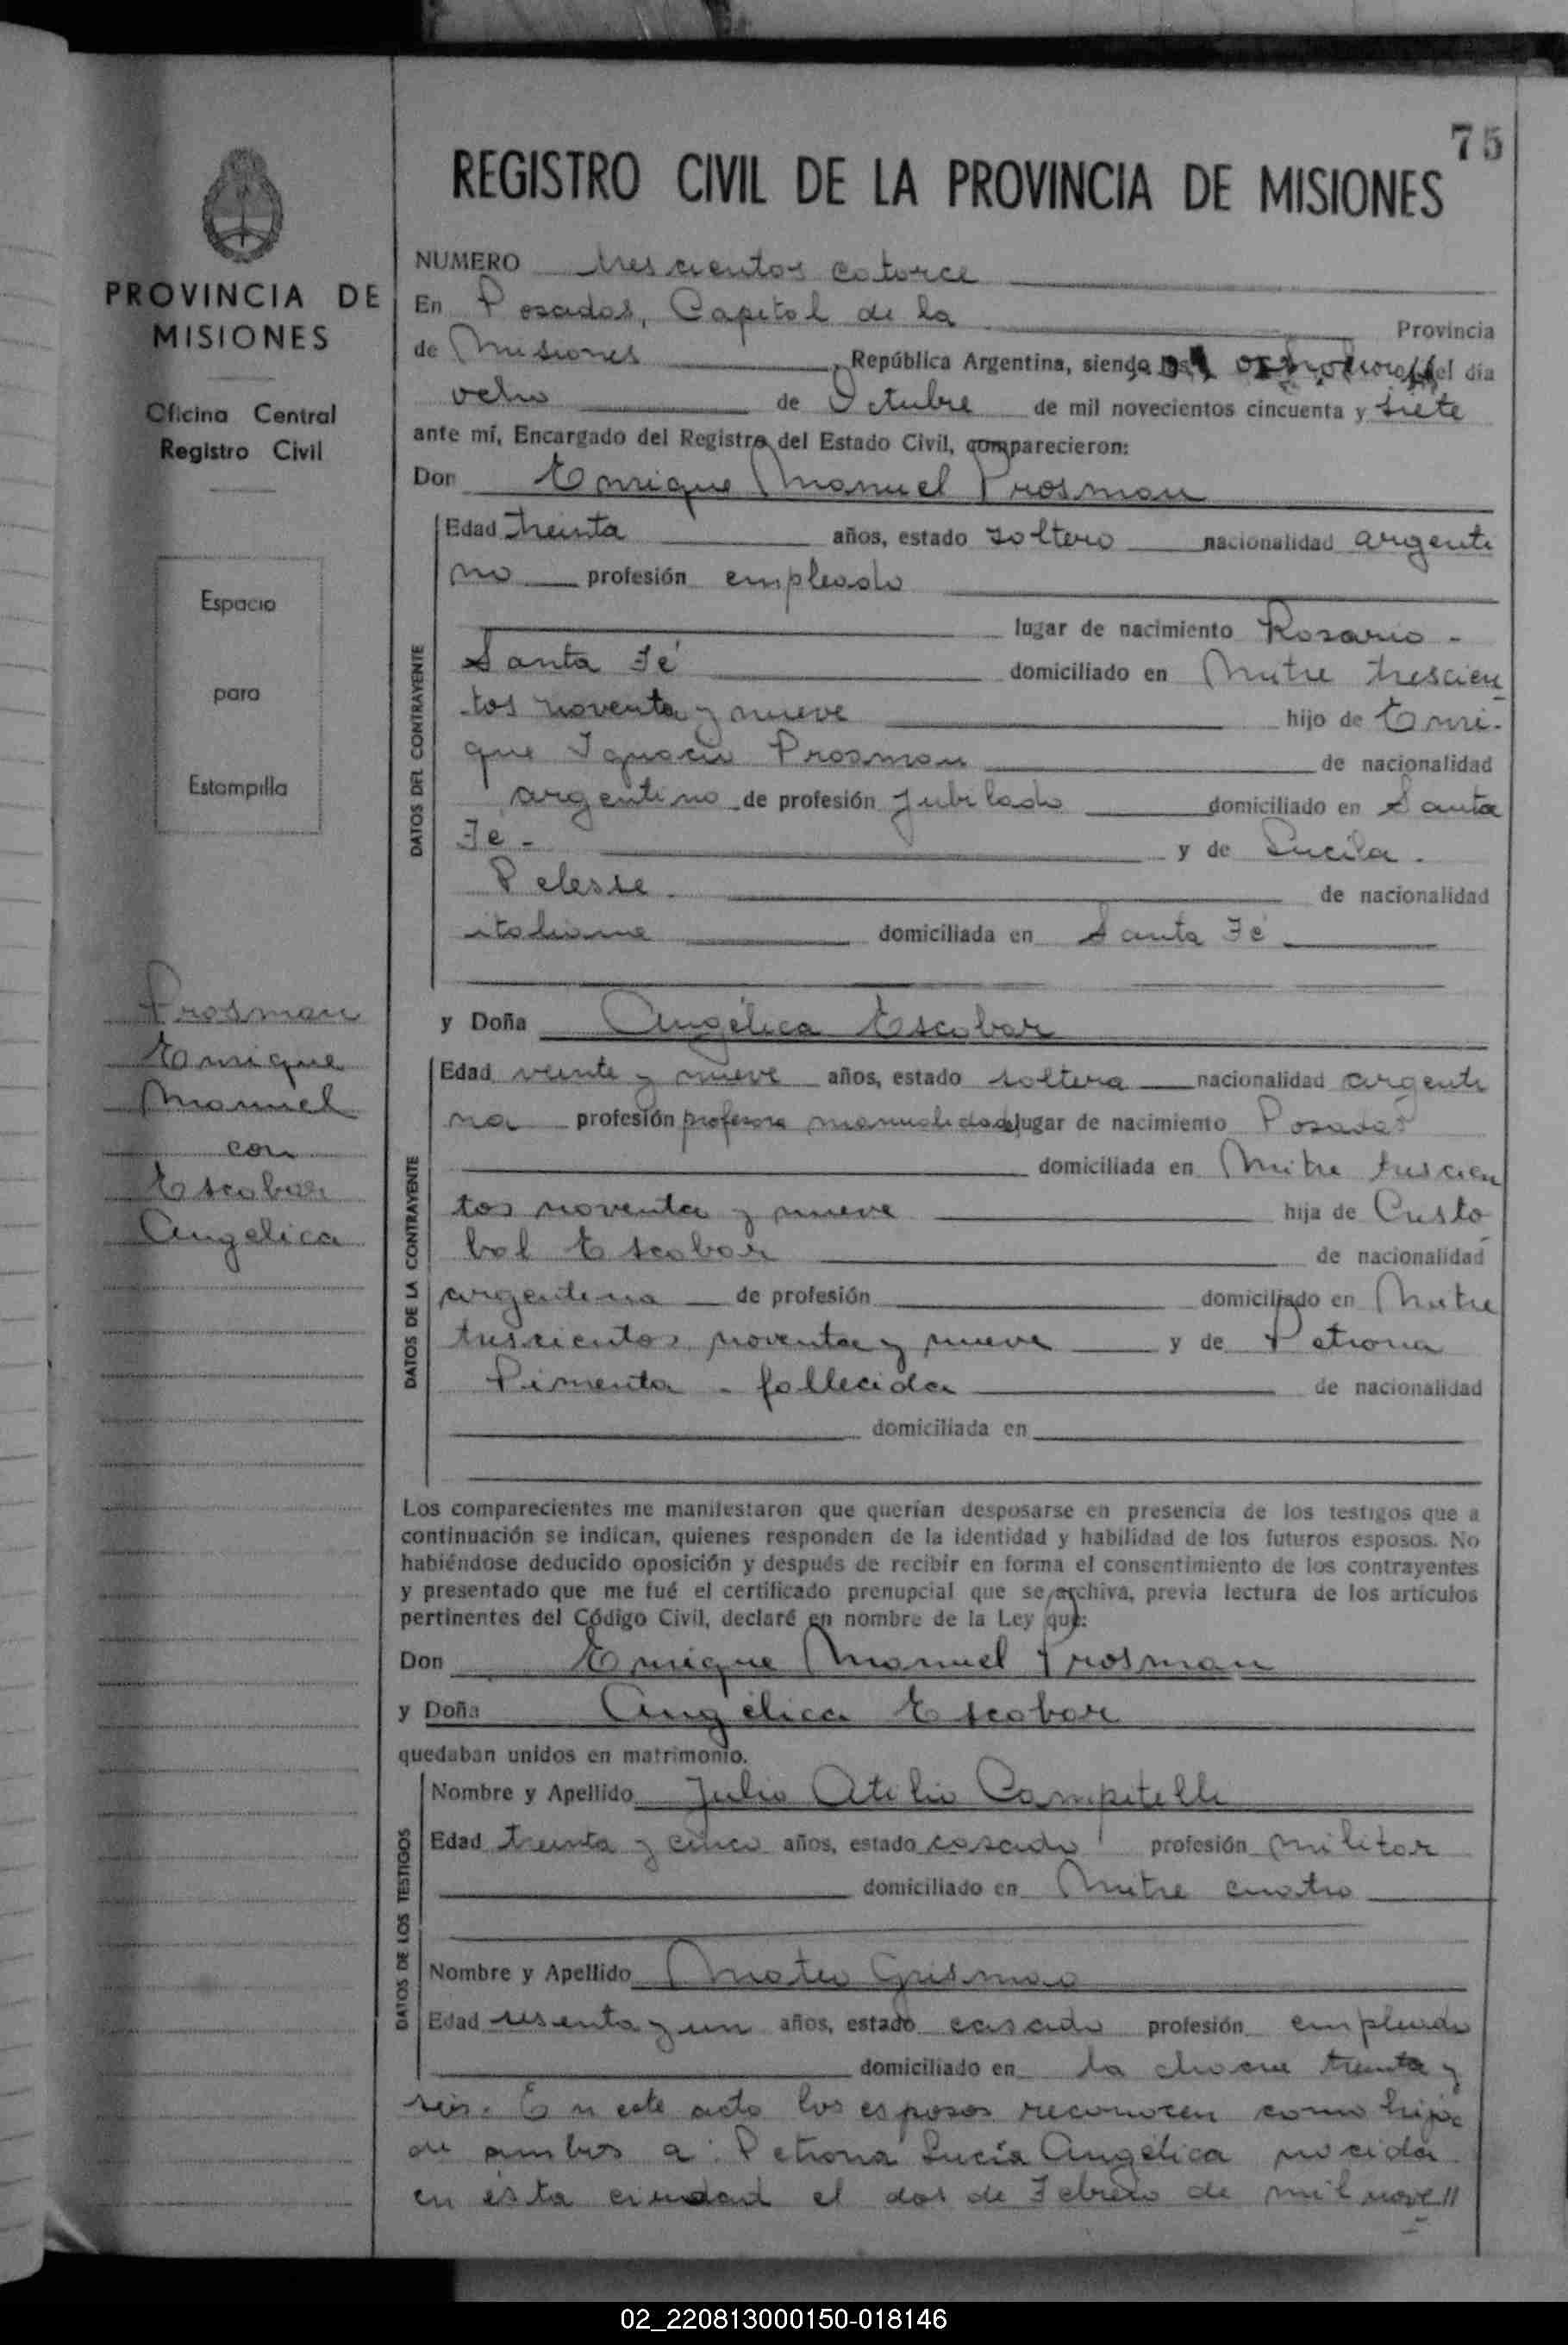 75
REGISTRO CIVIL DE LA PROVINCIA DE MISIONES
PROVINCIA DE
MISIONES
Oficina Central
Registro Civil
Espacio
para
Estampilla
Prosman
Enrique
Manuel
con
Escobar
Angelica
NUMERO trescientos catorce
En Posadas, Capital de la Provincia
de Misiones, República Argentina, siendo el día
ocho de Octubre de mil novecientos cincuenta y siete
ante mí, Encargado del Registro del Estado Civil, comparecieron:
Don Enrique Manuel Prosman
DATOS DEL CONTRAYENTE
Edad treinta años, estado soltero nacionalidad argenti
no profesión empleado
lugar de nacimiento Rosario -
Santa Fé domiciliado en Mitre trescien
tos noventa y nueve hijo de Enri-
que Ignacio Prosman de nacionalidad
argentino de profesión jubilado domiciliado en Santa
Fé - y de Lucila.
Pelesse. de nacionalidad
italiana domiciliada en Santa Fé
y Doña Angélica Escobar
DATOS DE LA CONTRAYENTE
Edad veinte y nueve años, estado soltera nacionalidad argenti
na profesión profesora manualidades lugar de nacimiento Posadas
domiciliada en Mitre trescien
tos noventa y nueve hija de Cristo
bal Escobar de nacionalidad
argentina de profesión domiciliado en Mitre
trescientos noventa y nueve y de Petrona
Pimenta - fallecida de nacionalidad
domiciliada en
Los comparecientes me manifestaron que querían desposarse en presencia de los testigos que a
continuación se indican, quienes responden de la identidad y habilidad de los futuros esposos. No
habiéndose deducido oposición y después de recibir en forma el consentimiento de los contrayentes
y presentado que me fué el certificado prenupcial que se archiva, previa lectura de los artículos
pertinentes del Código Civil, declaré en nombre de la Ley que:
Don Enrique Manuel Prosman
y Doña Angélica Escobar
quedaban unidos en matrimonio.
DATOS DE LOS TESTIGOS
Nombre y Apellido Julio Atilio Campitelli
Edad treinta y cinco años, estado casado profesión militar
domiciliado en Mitre cuatro
Nombre y Apellido Mateo Grismao
Edad sesenta y un años, estado casado profesión empleado
domiciliado en la treinta y
seis. En este acto los esposos reconocen como hija
de ambos a: Petrona Lucía Angélica nacida
en ésta ciudad el dos de Febrero de mil nove//
02_220813000150-018146